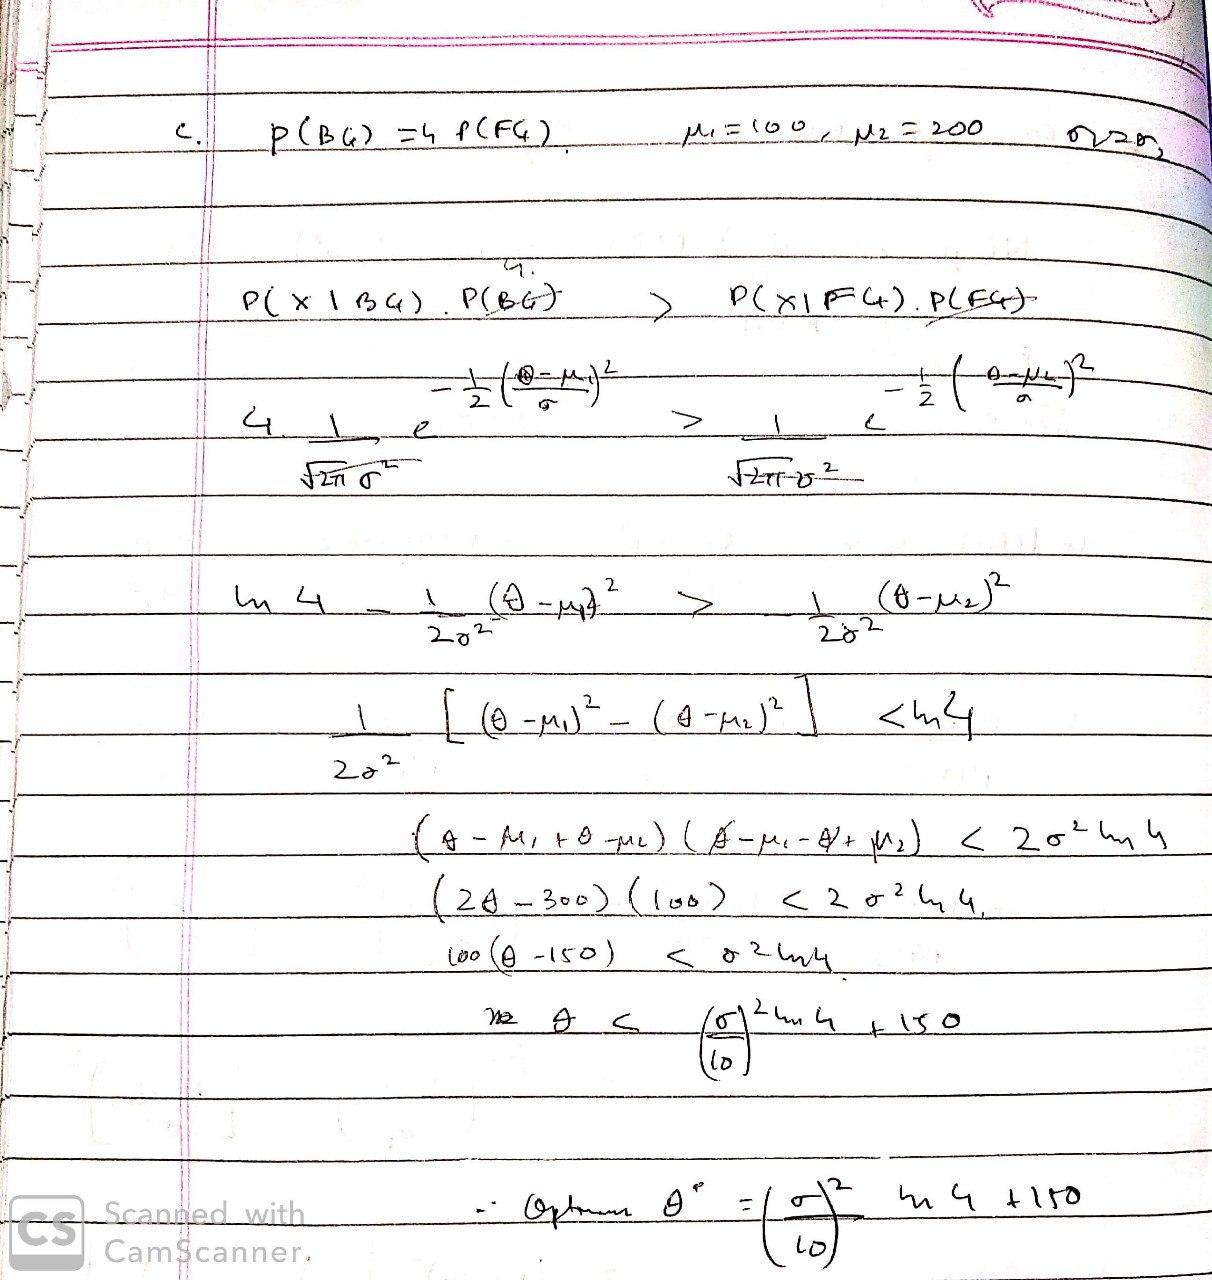 c. P(BG) = 4 P(FG) μ₁ = 100, μ₂ = 200
4.
P(X | BG) . P(BG) > P(X | FG) . P(FG)
4 . 1/√2πσ² e^(-1/2 ((θ-μ₁)/σ)²) > 1/√2πσ² e^(-1/2 ((θ-μ₂)/σ)²)
ln 4 - 1/2σ² (θ-μ₁)² > 1/2σ² (θ-μ₂)²
1/2σ² [ (θ-μ₁)² - (θ-μ₂)² ] < ln 4
(θ - μ₁ + θ - μ₂) (θ - μ₁ - θ + μ₂) < 2σ² ln 4
(2θ - 300) (100) < 2σ² ln 4.
100 (θ - 150) < σ² ln 4
θ < (σ/10)² ln 4 + 150
∴ Optimum θ* = (σ/10)² ln 4 + 150
CS Scanned with
CamScanner